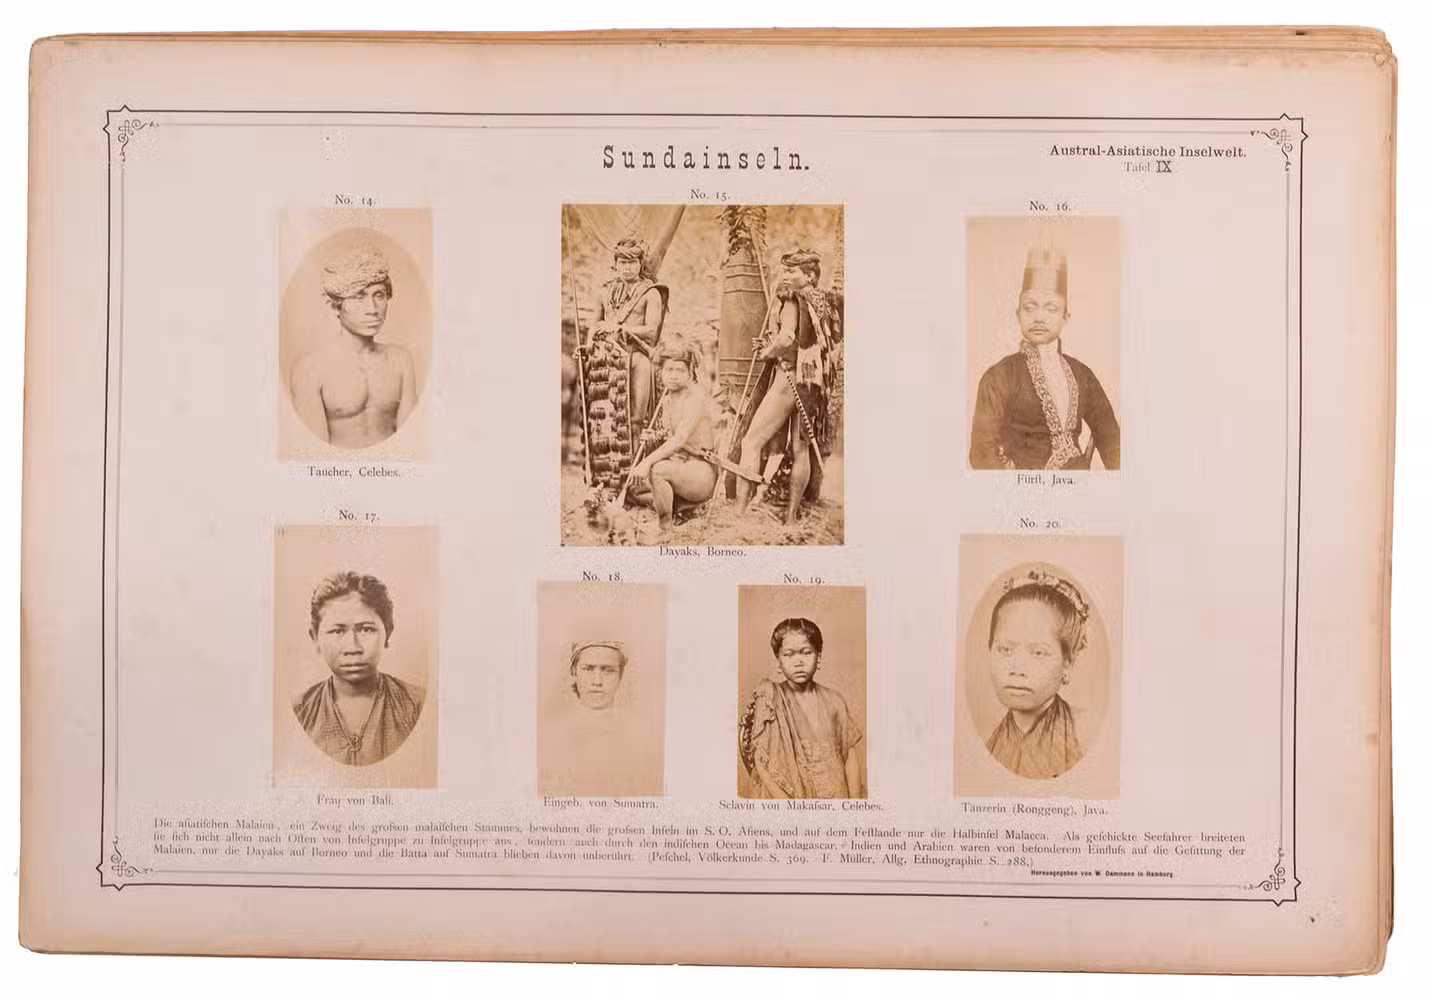 Sundainseln.
Austral-Asiatische Inselwelt.
Tafel IX
No. 14.
No. 15.
No. 16.
Taucher, Celebes.
Dayaks, Borneo.
Fürſt, Java.
No. 17.
No. 18.
No. 19.
No. 20.
Frau von Bali.
Eingeb. von Sumatra.
Sclavin von Makaſsar, Celebes.
Tänzerin (Ronggeng), Java.
Die aſiatiſchen Malaien, ein Zweig des groſsen malaiſchen Stammes, bewohnen die groſsen Inſeln im S. O. Aſiens, und auf dem Feſtlande nur die Halbinſel Malacca. Als geſchickte Seefahrer breiteten
ſie ſich nicht allein nach Oſten von Inſelgruppe zu Inſelgruppe aus, ſondern auch durch den indiſchen Ocean bis Madagascar. Indien und Arabien waren von beſonderem Einfluſs auf die Geſittung der
Malaien, nur die Dayaks auf Borneo und die Batta auf Sumatra blieben davon unberührt. (Peſchel, Völkerkunde S. 369. F. Müller, Allg. Ethnographie S. 288.)
Herausgegeben von W. Dammann in Hamburg.